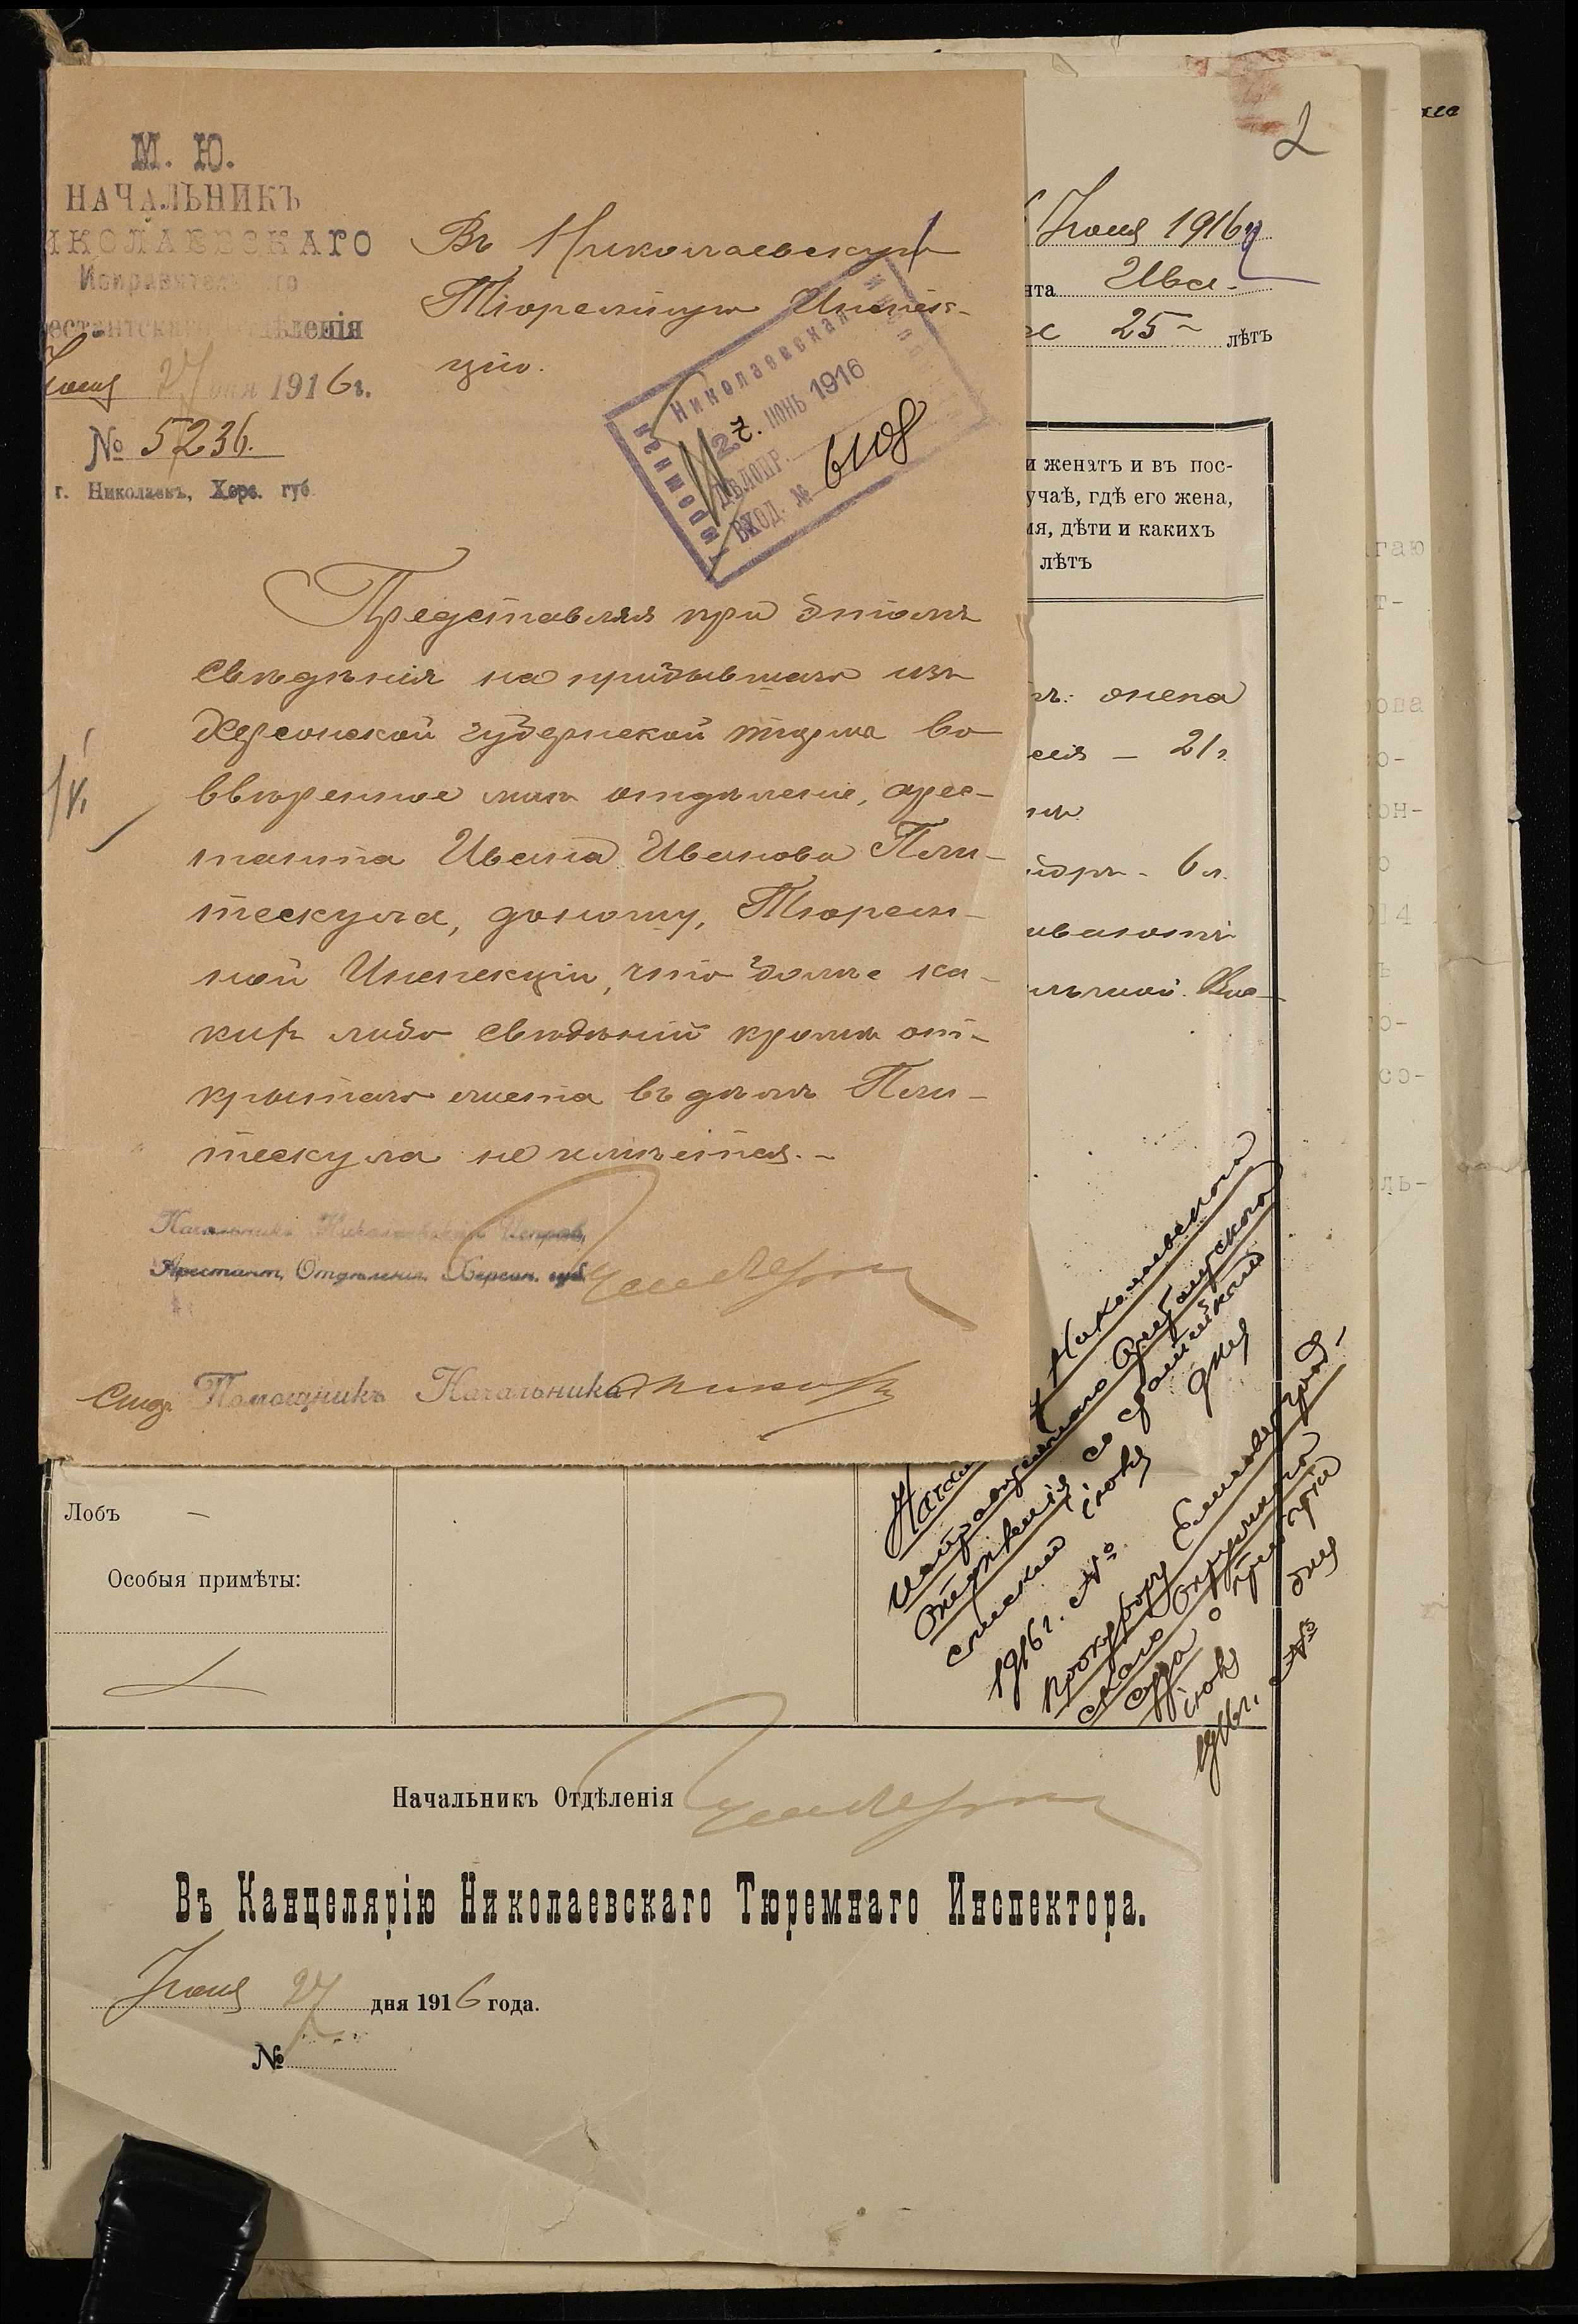 2
М. Ю.
НАЧАЛЬНИКЪ
ИКОЛАЕВСКАГО
Исправительнаго
естантскаго отдѣленія
Іюня 27 дня 1916 г.
№ 5236.
г. Николаевъ, Херс. губ.
Въ Николаевскую
Тюремную Инспек-
цію.
Николаевская
Тюремная
инспекція
27. ІЮНЬ 1916
ДѢЛОПР.
ВХОД. № 6108
Представляя при этомъ
свѣдѣнія на прибывшаго изъ
Херсонской губернской тюрьмы во
ввѣренное мнѣ отдѣленіе, арес-
танта Ивана Иванова Пли-
тескула, доношу, Тюрем-
ной Инспекціи, что болѣе ка-
кихъ либо свѣдѣній кромѣ от-
крытаго листа въ дѣлѣ Пли-
тескула не имѣется.-
Начальникъ Николаевскаго Исправ.
Арестант. Отдѣленія Херсон. губ.
Помощникъ Начальника
Іюня 1916 г.
нта Ива-
25 - лѣтъ
и женатъ и въ пос-
учаѣ, гдѣ его жена,
ия, дѣти и какихъ
лѣтъ
ъ: жена
сія - 21 г.
6 л.
Лобъ -
Особыя примѣты:
Николаевскаго
Исправительнаго Арестантскаго
Отдѣленія со статейнымъ
спискомъ іюня дня
1916 г. №
Прокурору Елисаветград-
скаго Окружнаго
Суда о
іюня дня
1916 г. №
Начальникъ Отдѣленія
Въ Канцелярію Николаевскаго Тюремнаго Инспектора.
Іюня 27 дня 1916 года.
№
гаю
т-
ова
о-
он-
о
014
ъ
о-
со-
ль-